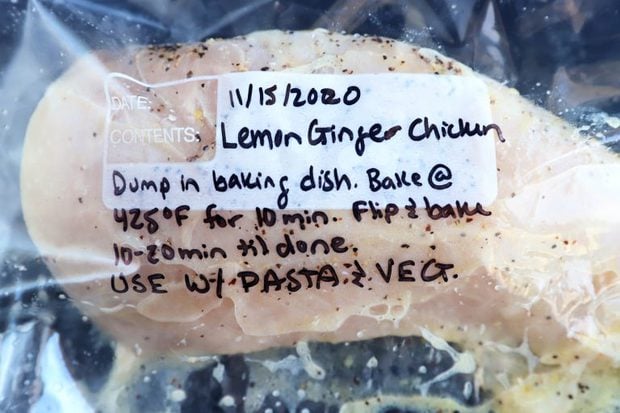 DATE: 11/15/2020
CONTENTS: Lemon Ginger Chicken
Dump in baking dish. Bake @
425°F for 10 min. Flip & bake
10-20min til done.
USE W/ PASTA & VEG.